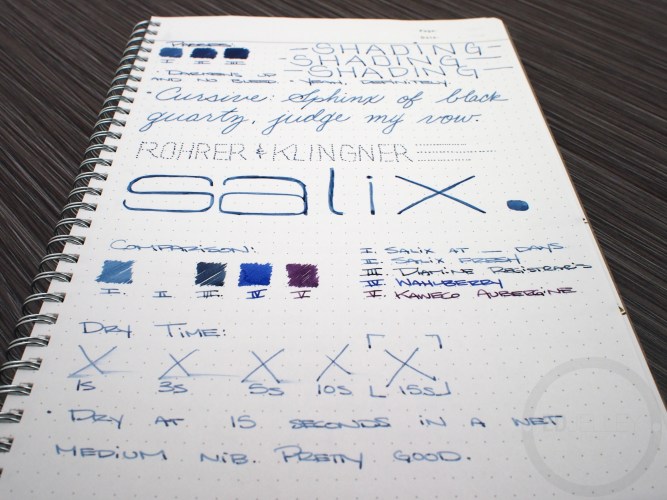 SHADING
SHADING
SHADING
I II III
• DARKENS UP
AND NO BLEED. • YEAH, DEFINITELY.
• Cursive: Sphinx of black
quartz, judge my vow.
ROHRER & KLINGNER
salix.
COMPARISON:
I. II. III. IV V
I. SALIX AT _ DAYS
II. SALIX FRESH
III. DIAMINE REGISTRAR'S
IV WAHLBERRY
V. KAWECO AUBERGINE
DRY TIME:
1S 3S 5S 10S 15S
• DRY AT 15 SECONDS IN A NET
MEDIUM NIB. PRETTY GOOD.